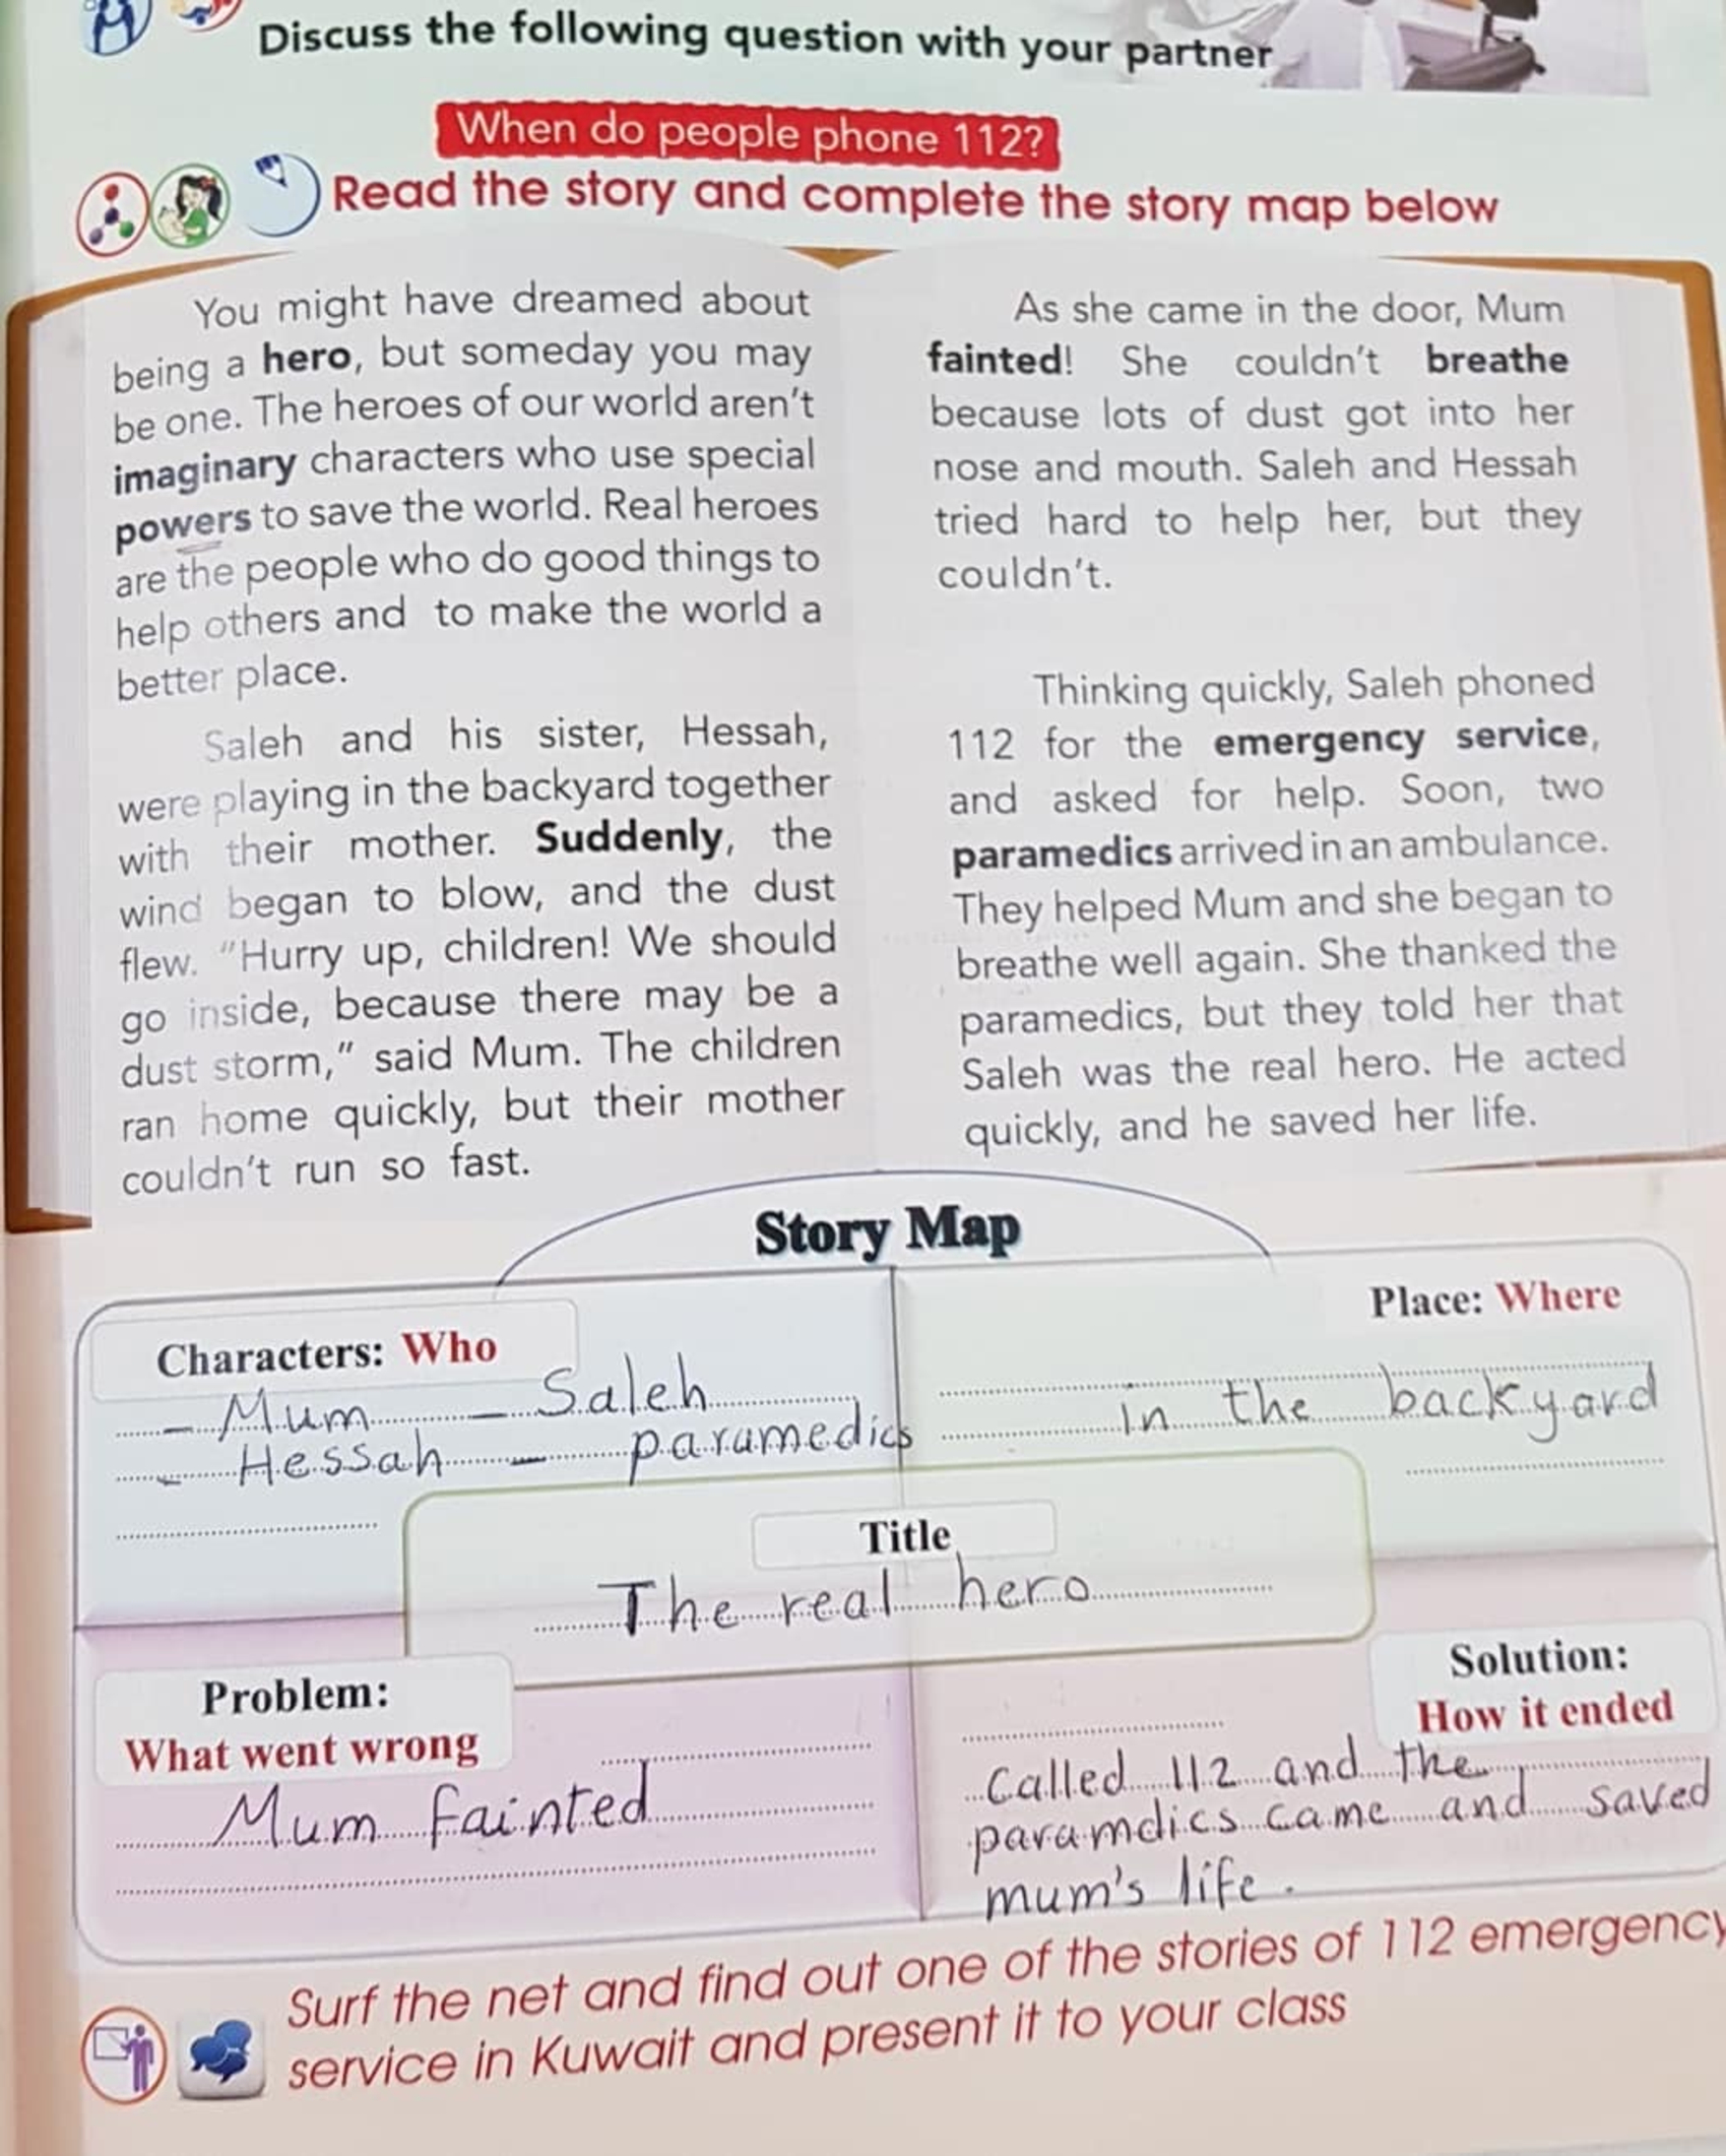 Discuss the following question with your partner
When do people phone 112?
Read the story and complete the story map below
You might have dreamed about
being a hero, but someday you may
be one. The heroes of our world aren't
imaginary characters who use special
powers to save the world. Real heroes
are the people who do good things to
help others and to make the world a
better place.
Saleh and his sister, Hessah,
were playing in the backyard together
with their mother. Suddenly, the
wind began to blow, and the dust
flew. "Hurry up, children! We should
go inside, because there may be a
dust storm," said Mum. The children
ran home quickly, but their mother
couldn't run so fast.
As she came in the door, Mum
fainted! She couldn't breathe
because lots of dust got into her
nose and mouth. Saleh and Hessah
tried hard to help her, but they
couldn't.
Thinking quickly, Saleh phoned
112 for the emergency service,
and asked for help. Soon, two
paramedics arrived in an ambulance.
They helped Mum and she began to
breathe well again. She thanked the
paramedics, but they told her that
Saleh was the real hero. He acted
quickly, and he saved her life.
Story Map
Characters: Who
- Mum - Saleh
- Hessah - paramedics
Place: Where
in the backyard
Title
The real hero
Problem:
What went wrong
Mum fainted
Solution:
How it ended
Called 112 and the
paramdics came and saved
mum's life.
Surf the net and find out one of the stories of 112 emergency
service in Kuwait and present it to your class